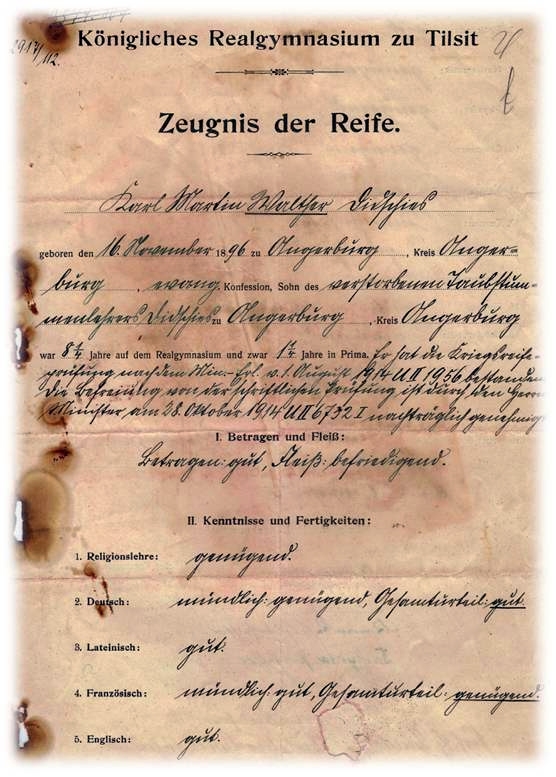 2917/112.
Königliches Realgymnasium zu Tilsit
Zeugnis der Reife.
Karl Martin Walther Didschies
geboren den 16. November 1896 zu Angerburg, Kreis Anger-
burg, evang. Konfession, Sohn des verstorbenen Taubstum-
menlehrers Didschies zu Angerburg, Kreis Angerburg
war 8¼ Jahre auf dem Realgymnasium und zwar 1¼ Jahre in Prima. Er hat die Kriegsreife-
prüfung nach dem Min. Erl. v. 1. August 1914 U II 1956 bestanden.
Die Befreiung von der schriftlichen Prüfung ist durch den Herrn
Minister am 28. Oktober 1914 U II 6732 I nachträglich genehmigt
I. Betragen und Fleiß:
Betragen: gut, Fleiß: befriedigend.
II. Kenntnisse und Fertigkeiten:
1. Religionslehre: genügend.
2. Deutsch: mündlich: genügend, Gesamturteil: gut.
3. Lateinisch: gut.
4. Französisch: mündlich: gut, Gesamturteil: genügend.
5. Englisch: gut.